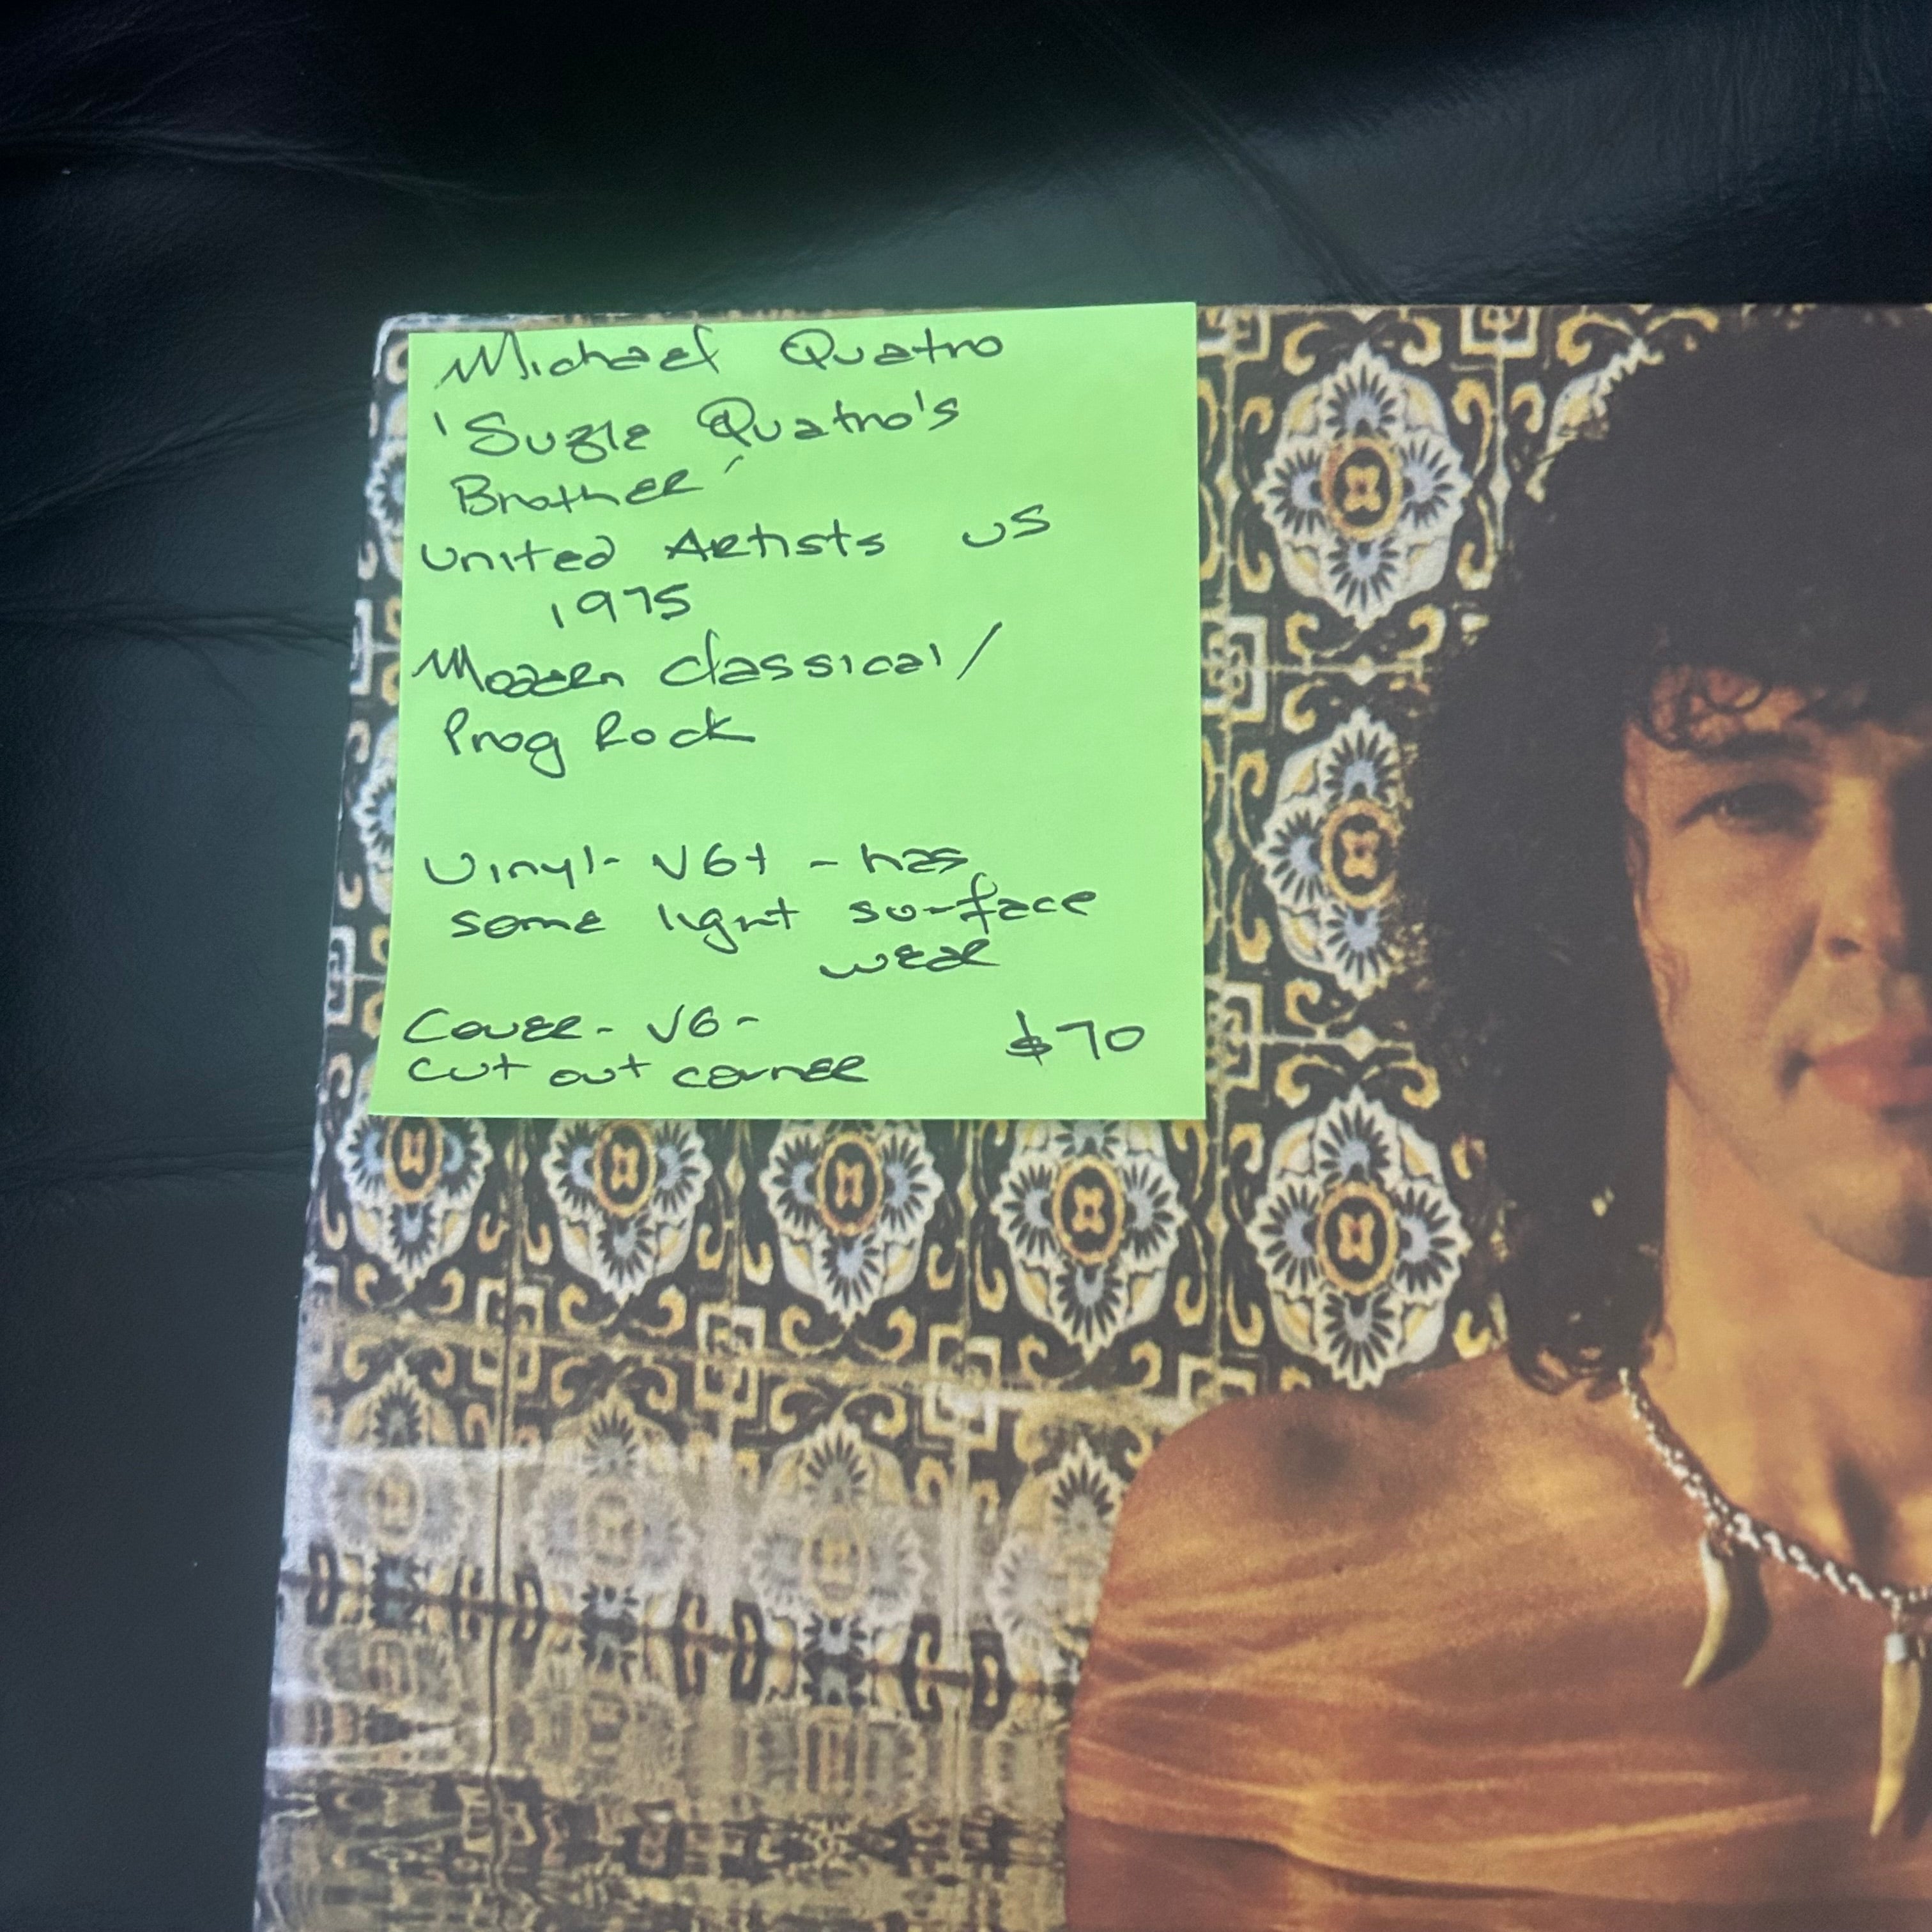 Michael Quatro
'Suzie Quatro's
Brother'
United Artists US
1975
Modern Classical/
Prog Rock
Vinyl- VG+ - has
some light surface
wear
Cover- VG-
cut out corner $70